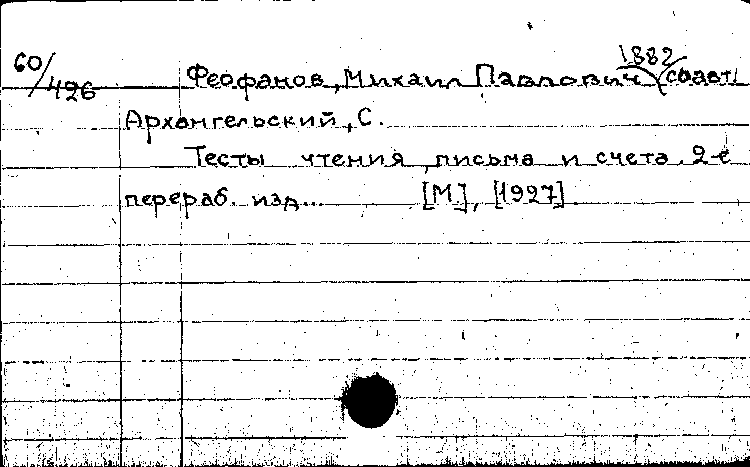 60/426 Феофанов, Михаил Павлович 1882 (соавт.
Архангельский, С.
Тесты чтения, письма и счета. 2-е
перераб. изд... [М], [1927].